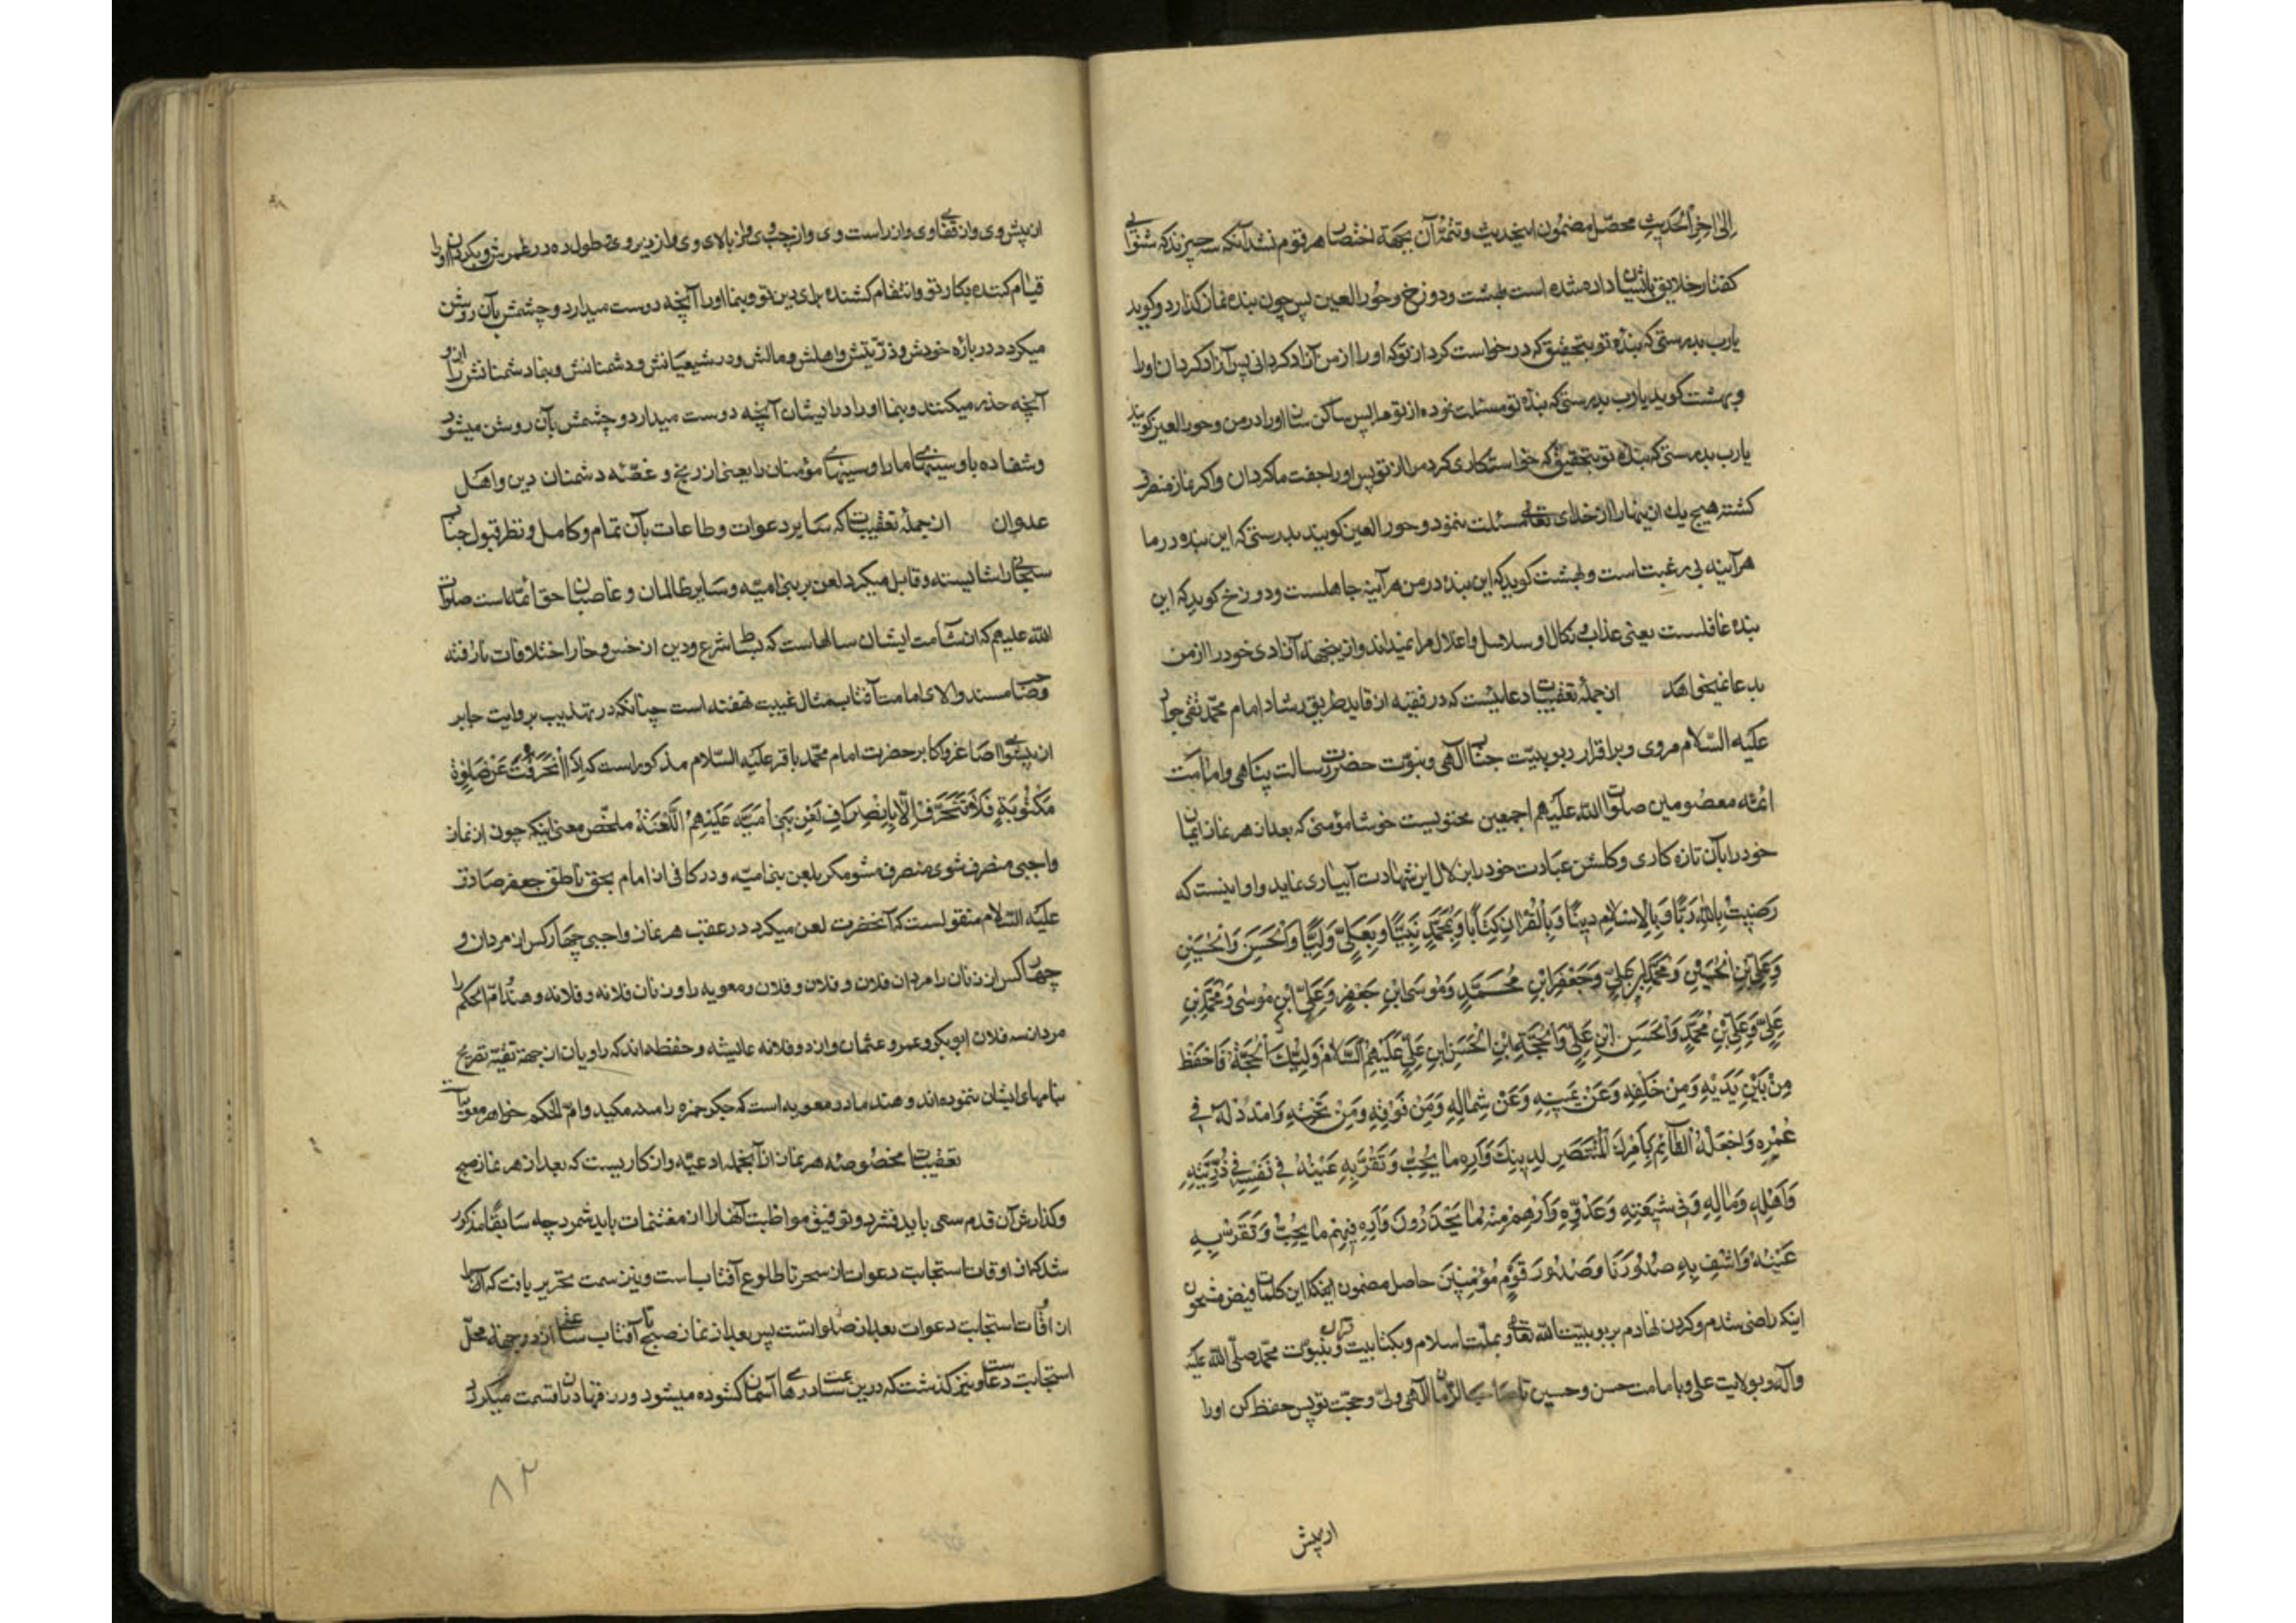 إلی اخر الحدیث محصّل مضمون اینحدیث و تتمّهٔ آن بجهة اختصار هر قوم نشد آنکه سه چیزند که شنوایی
کفتار خلایق بایشان داده شده است بهشت ودوزخ وحور العین پس چون بنده نماز کذارد و کوید
یارب بدرستی که بندهٔ تو بتحقیق که درخواست کرد از تو که او را از من آزاد کردانی پس آزاد کردان او را
و بهشت کوید یارب بدرستی که بندهٔ تو مسئلت نموده از تو مرا پس ساکن سان او را در من وحور العین کویند
یارب بدرستی که بندهٔ تو بتحقیق که خواستکاری کرد مرا از تو پس او را جفت ما کردان واکر نماز منصرف
کشته هیچ یك ازینها را از خدای تعالی مسئلت ننمود وحور العین کویند بدرستی که این بنده در ما
هر آینه بی رغبت است و بهشت کوید که این بنده در من هر آینه جاهلست ودوزخ کوید که این
بنده غافلست یعنی عذاب و نکال او سلاسل واغلال مرا نمیداند وازینجهة آزادی خود را از من
بدعا نمیخواهد ازجملهٔ تعقیبات دعائیست که در فقیه از قاید طریق رشاد امام محمّد تقی جواد
علیه السّلام مروی و بر اقرار ربوبیّت جناب الهی ونبوّت حضرت رسالت پناهی وامامت
ائمّه معصومین صلوات الله علیهم اجمعین محتویست خوشا مؤمنی که بعد از هر نماز ایمان
خود را بآن تازه کاری و کلشن عبادت خود را بزلال این شهادت آبیاری نماید و او اینست که
رَضِیتُ بِاللهِ رَبًّا وَبِالْاِسْلامِ دِینًا وَبِالْقُرْانِ کِتَابًا وَبِمُحَمَّدٍ نَبِیًّا وَبِعَلِیٍّ وَلِیًّا وَالْحَسَنِ وَالْحُسَیْنِ
وَعَلِیِّ بْنِ الْحُسَیْنِ وَمُحَمَّدِ بْنِ عَلِیٍّ وَجَعْفَرِ ابْنِ مُحَمَّدٍ وَمُوسَی ابْنِ جَعْفَرٍ وَعَلِیِّ ابْنِ مُوسٰی وَمُحَمَّدِ بْنِ
عَلِیٍّ وَعَلِیِّ بْنِ مُحَمَّدٍ وَالْحَسَنِ ابْنِ عَلِیٍّ وَالْحُجَّةِ ابْنِ الْحَسَنِ ابْنِ عَلِیٍّ عَلَیْهِمُ السَّلَامُ وَلِیُّكَ الْحُجَّةُ فَاحْفَظْهُ
مِنْ بَیْنِ یَدَیْهِ وَمِنْ خَلْفِهِ وَعَنْ یَمِینِهِ وَعَنْ شِمَالِهِ وَمِنْ فَوْقِهِ وَمِنْ تَحْتِهِ وَامْدُدْ لَهُ فِی
عُمْرِهِ وَاجْعَلْهُ الْقَآئِمَ بِاَمْرِكَ الْمُنْتَصِرَ لِدِینِكَ وَاَرِهِ مَا یُحِبُّ وَتَقَرُّ بِهِ عَیْنُهُ فِی نَفْسِهِ فِی ذُرِّیَّتِهِ
وَاَهْلِهِ وَمَالِهِ وَفِی شِیعَتِهِ وَعَدُوِّهِ وَاَرِهِمْ مِنْهُ مَا یَحْذَرُونَ وَاَرِهِ فِیهِمْ مَا یُحِبُّ وَتَقَرُّ بِهِ
عَیْنُهُ وَاشْفِ بِهِ صُدُورَنَا وَصُدُورَ قَوْمٍ مُؤْمِنِینَ حاصل مضمون این کلمات فیض مشحون
اینکه راضی شدم وکردن نهادم بربوبیّت الله تعالی و بملّت اسلام و بکتابیت قرآن و بنبوّت محمّد صلّی الله علیه
وآله و بولایت علی و بامامت حسن وحسین تا صاحب الزّمان الهی ولیّ وحجّت تو پس حفظ کن او را
از پیش
از پیش وی واز قفای وی واز راست وی واز چپ وی واز بالای وی واز زیر وی و طول ده در عمرش و بکردان او را
قیام کننده بکار تو وانتقام کشنده برای دین تو و بنما او را آنچه دوست میدارد و چشمش بآن روشن
میکردد در بارهٔ خودش وذرّیتش واهلش ومالش ودر شیعیانش و دشمنانش و بنما دشمنانش را ازو
آنچه حذر میکنند و بنما او را در ایشان آنچه دوست میدارد و چشمش بآن روشن میشود
وشفا ده باو سینهای ما را و سینهای مؤمنان را یعنی از رنج و غصّهٔ دشمنان دین واهل
عدوان ازجملهٔ تعقیبات که سایر دعوات وطاعات بآن تمام وکامل و نظر قبول جناب
سبحانی را شایسته و قابل میکردد لعن بر بنی امیّه وسایر ظالمان و غاصبان حق ائمّه است صلوات
الله علیهم که از شآمت ایشان سالهاست که بساط شرع ودین از خس وخار اختلافات نارفته
وصاحب مسند والای امامت آفتاب مثال غیبت نهفته است چنانکه در تهذیب بروایت جابر
از پیشوای اصاغر واکابر حضرت امام محمّد باقر علیه السّلام مذکور است که إِذَا انْحَرَفْتَ عَنْ صَلوٰةٍ
مَکْتُوبَةٍ فَلَا تَنْحَرِفْ اِلَّا بِانْصِرَافِ لَعْنِ بَنِی اُمَیَّه عَلَیْهِمُ اللَّعْنَةُ ملخّص معنی اینکه چون از نماز
واجبی منصرف شوی منصرف مشو مکر بلعن بنی امیّه ودر کافی از امام بحق ناطق جعفر صادق
علیه السّلام منقولست که آنحضرت لعن میکرد در عقب هر نماز واجبی چهار کس از مردان و
چهار کس از زنان را مردان فلان و فلان و فلان ومعویه را وزنان فلانه و فلانه و هند وامّ الحکم را
مرداز سه فلان ابوبکر و عمر و عثمان واز دو فلانه عایشه وحفظه اند که راویان از جهة تقیّه تصریح
بنامهای ایشان ننموده اند و هند مادر معویه است که جکر حمزه را میمکید وامّ الحکم خواهر معویه
تعقیبات مخصوصهٔ هر نماز ازآنجمله ادعیّه واذکاریست که بعد از هر نماز صبح
وکذارش آن قدم سعی باید فشرد و توفیق مواظبت آنها را از مغتنمات باید شمرد چه سابقًا مذکور
شد که از اوقات استجابت دعوات از سحر تا طلوع آفتابست ونیز سمت تحریر یافت که
از اوقات استجابت دعوات بعد از صلوات است پس بعد از نماز صبح تا آفتاب ساعتی از دو جهة محلّ
استجابت دعاست ونیز کذشت که درین ساعت درهای آسمان کشوده میشود ورزقها در آن قسمت میکردد
۸۲